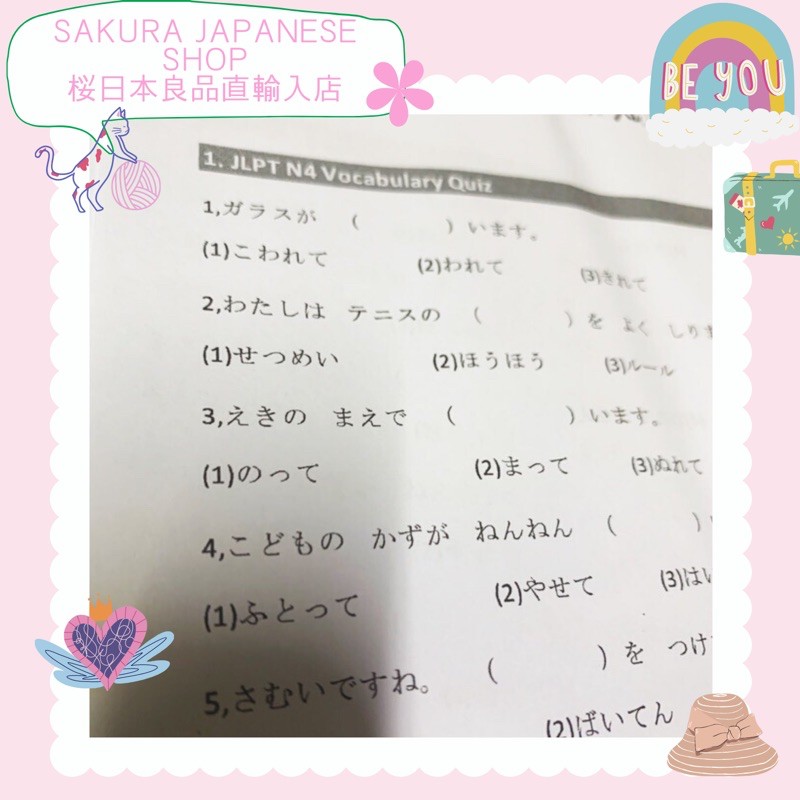 SAKURA JAPANESE
SHOP
桜日本良品直輸入店
BE YOU
1. JLPT N4 Vocabulary Quiz
1,ガラスが ( ) います。
(1)こわれて (2)われて (3)きれて
2,わたしは テニスの ( ) を よく しりま
(1)せつめい (2)ほうほう (3)ルール
3,えきの まえで ( ) います。
(1)のって (2)まって (3)ぬれて
4,こどもの かずが ねんねん ( )
(1)ふとって (2)やせて (3)はい
5,さむいですね。 ( ) を つけ
(2)ばいてん